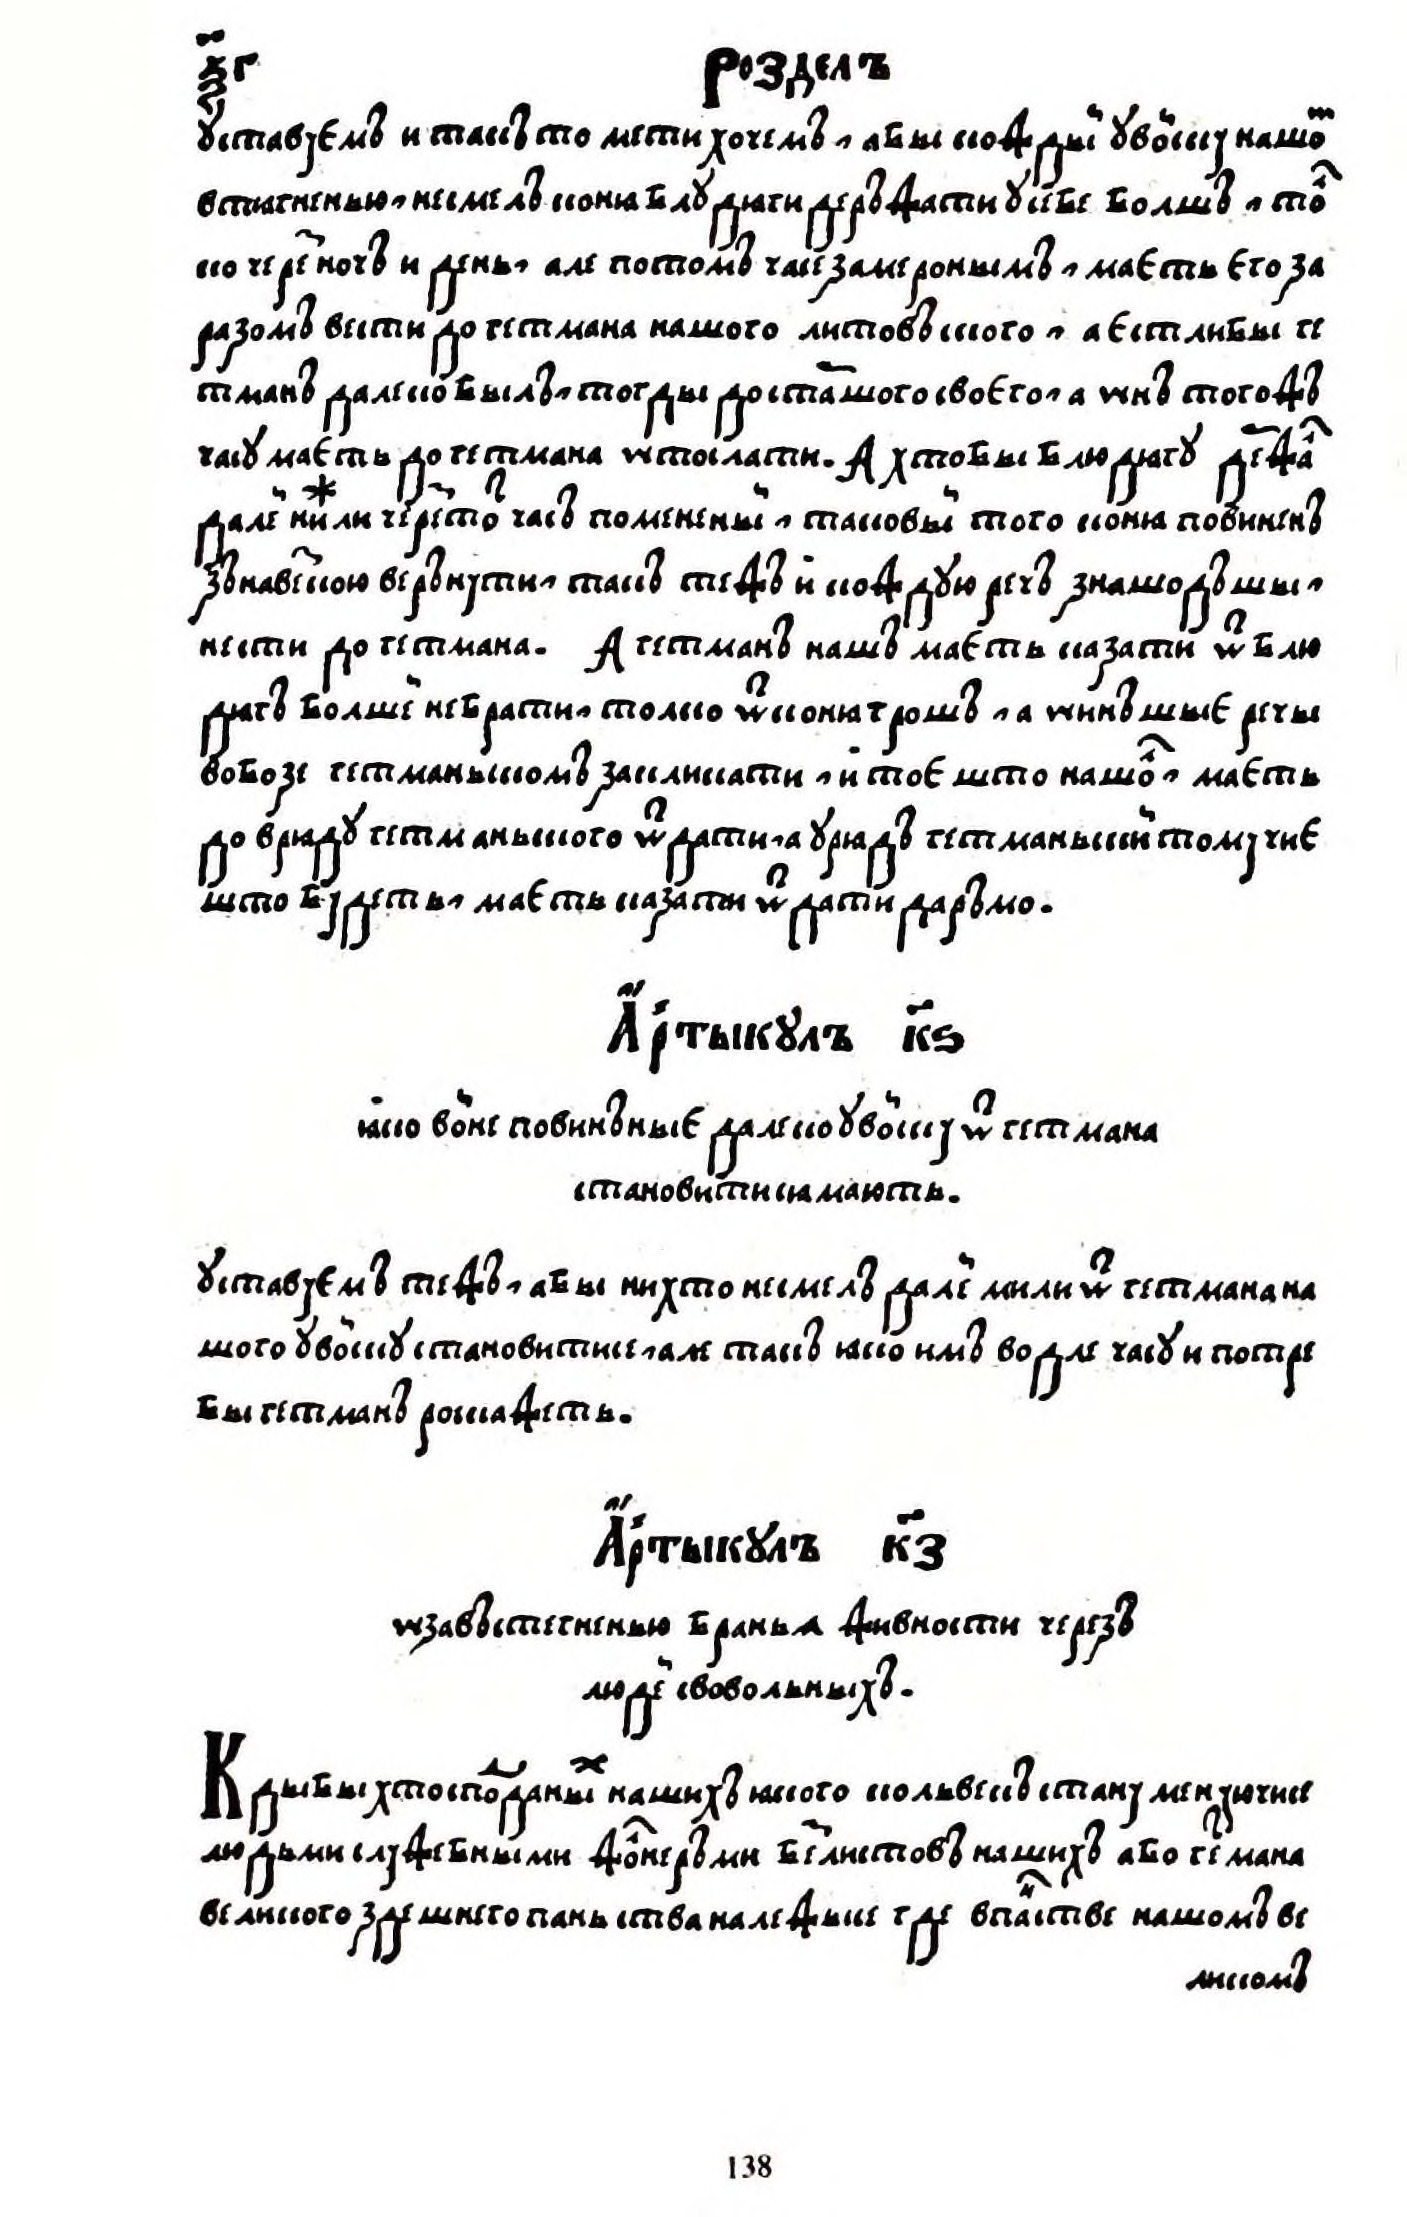 ѯ҃г Розделъ
уставуємъ и такъ то мети хочемъ, абы кождый у войску нашо͏ⷨ
в тягненью, не смелъ коня блудяги держати у себе болшъ, то͏ⷧ
ко чере ночъ и день, але потомъ часе замеронымъ, маєть єго за
разомъ вести до гетмана нашого литовъского, а єстлибы ге
тманъ далеко былъ, тогды до сташого своєго, а ѡнъ тогожъ
часу маєть до гетмана ѿослати. А хто бы блюдягу дежа͏ⷧ
далей нижли чере то͏ⷮ часъ помененый, таковый того коня повиненъ
зънавекою верънути, такъ тежъ и кождую речъ знашодъшы,
нести до гетмана. А гетманъ нашъ маєть казати ѿ блю
дягъ болшей не брати, толко ѿ коня грошъ, а ѡнъшыє речы
в обозе гетманьскомъ закликати, и тоє што нашо͏ⷧ, маєть
до врядu гетманьского ѿдати, а урядъ гетманьский тому чиє
што будеть, маєть казати ѿдати даръмо.
Артыкулъ к҃ѕ
яко войне повинъныє далеко у войску ѿ гетмана
становитися мають.
уставуємъ тежъ, абы нихто не смелъ далей мили ѿ гетмана на
шого у войску становитисе, але такъ яко имъ водле часу и потре
бы гетманъ роскажеть.
Артыкулъ к҃з
ѡ завъстегненью бранья живности черезъ
людей свовольныхъ.
Кдыбы хто с подданы͏ⷯ нашихъ якого кольвекъ стану менуючисе
людьми служебными жо͏ⷧнеръми бе листовъ нашихъ або гетмана
великого здешнего паньства належысе где в па͏ⷩстве нашомъ ве
ликомъ
138